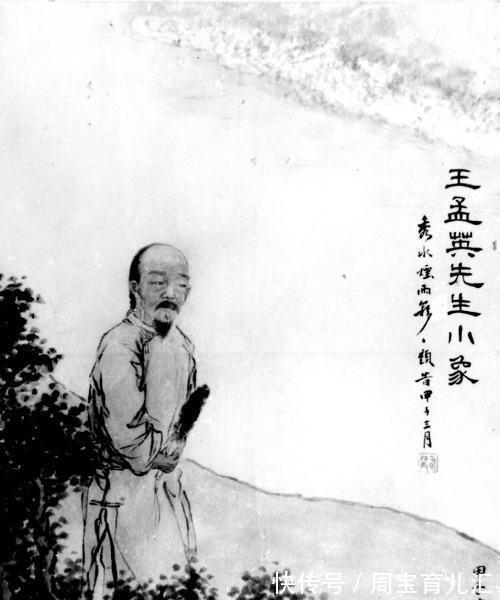 王孟英先生小象
秀水煙雨
題眉甲子三月
快传号/周宝育儿汇